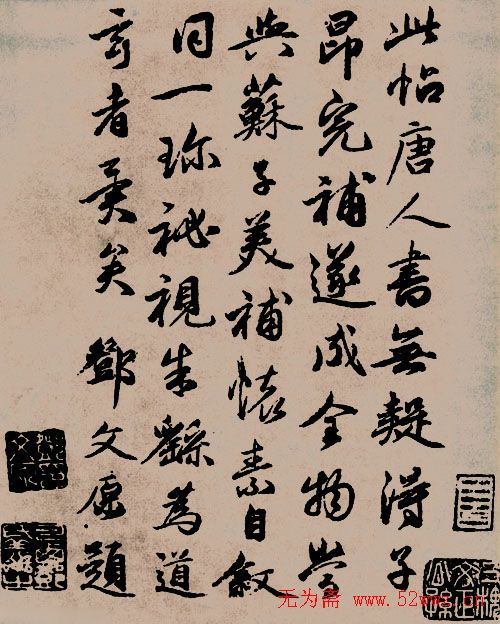 此帖唐人書無疑得子
昂完補遂成全物當
與蘇子美補懷素自敘
同一珍祕視朱繇為道
玄者異矣 鄧文原題
无为斋 www.52wwz.cn